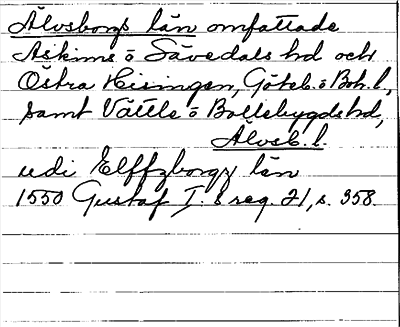 Älvsborgs län omfattade
Askims o Sävedals hd och
Östra Hisingen, Göteb. o Boh. l.,
samt Vättle o Bollebygds hd,
Älvsb. l.
udi Elffzborgz län
1550 Gustaf I:s reg. 21, s. 358.